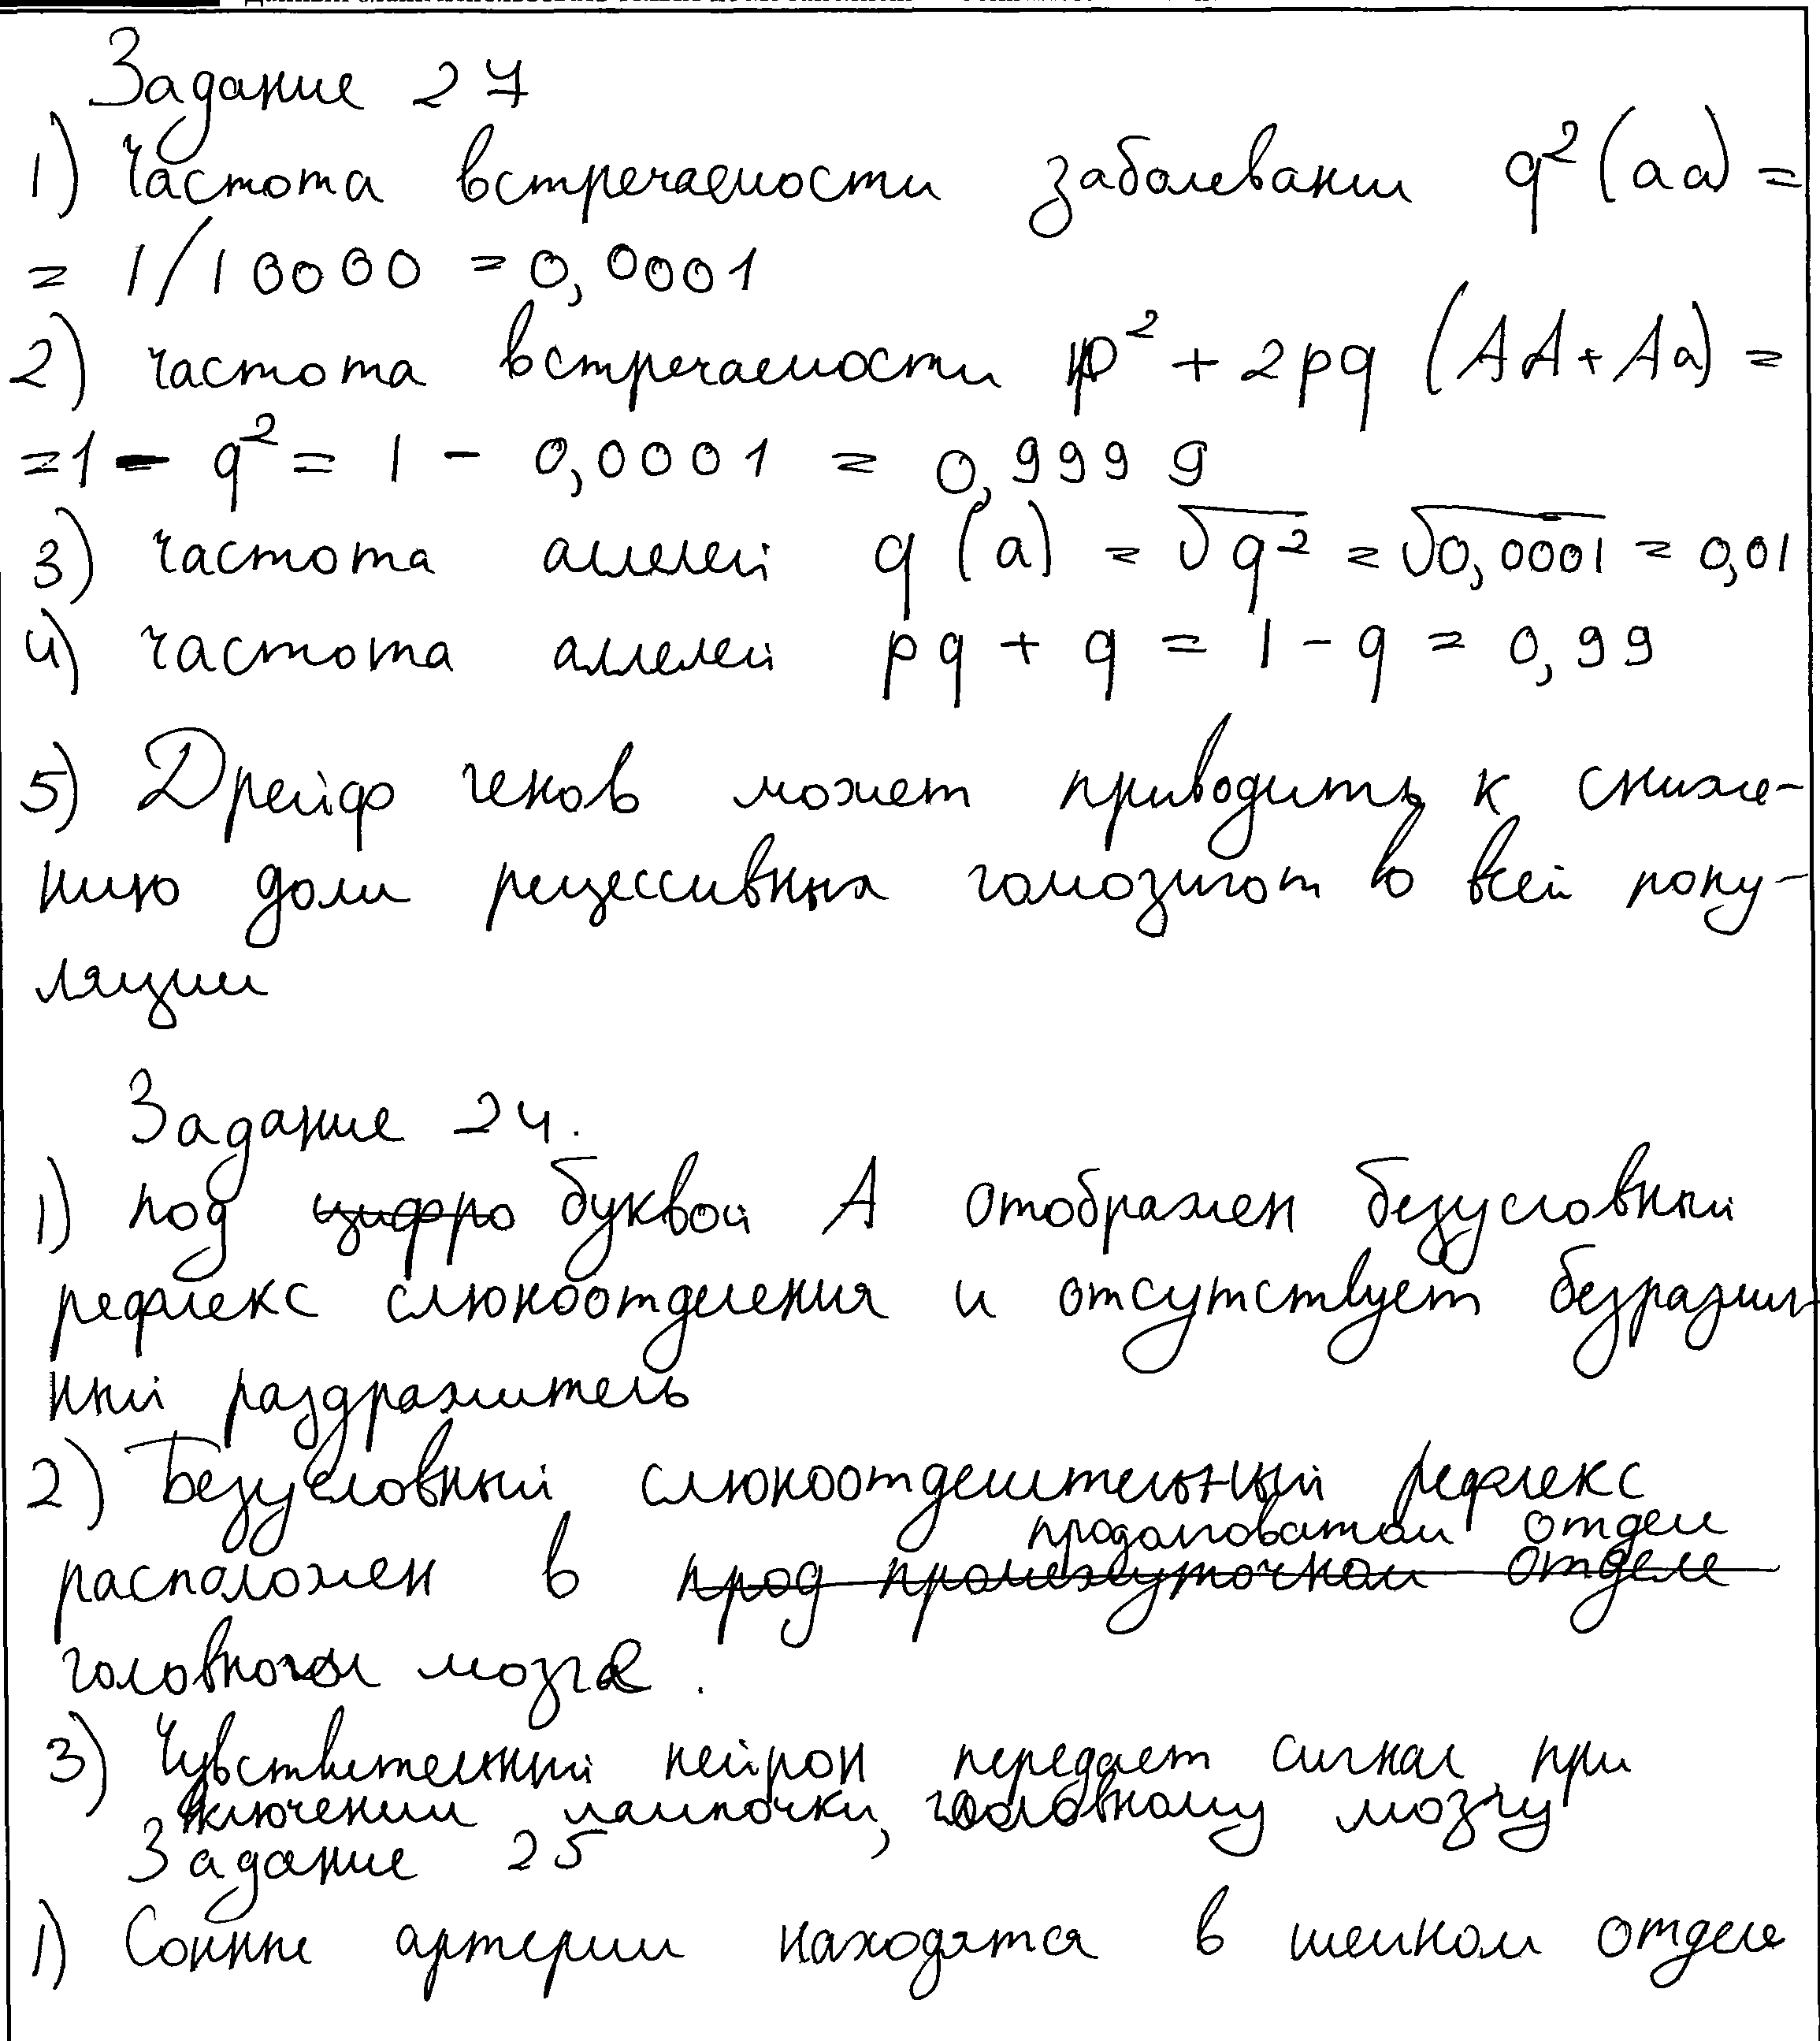 Задание 27
1) Частота встречаемости заболевании q²(aa) =
= 1/10000 = 0,0001
2) частота встречаемости p² + 2pq (AA+Aa) =
=1 - q² = 1 - 0,0001 = 0,9999
3) частота аллелей q (a) = √q² = √0,0001 = 0,01
4) частота аллелей pq + q = 1 - q = 0,99
5) Дрейф генов может приводить к сниже-
нию доли рецессивных гомозигот во всей попу-
ляции
Задание 24.
1) под цифро буквой А отображен безусловный
рефлекс слюноотделения и отсутствует безразли-
ный раздражитель
2) Безусловный слюноотделительный рефлекс
продолговатом отделе
расположен в прод промежуточном отделе
головного мозга.
3) Чувствительный нейрон передает сигнал, при
включении лампочки, головному мозгу
Задание 25
1) Сонные артерии находятся в шейном отделе